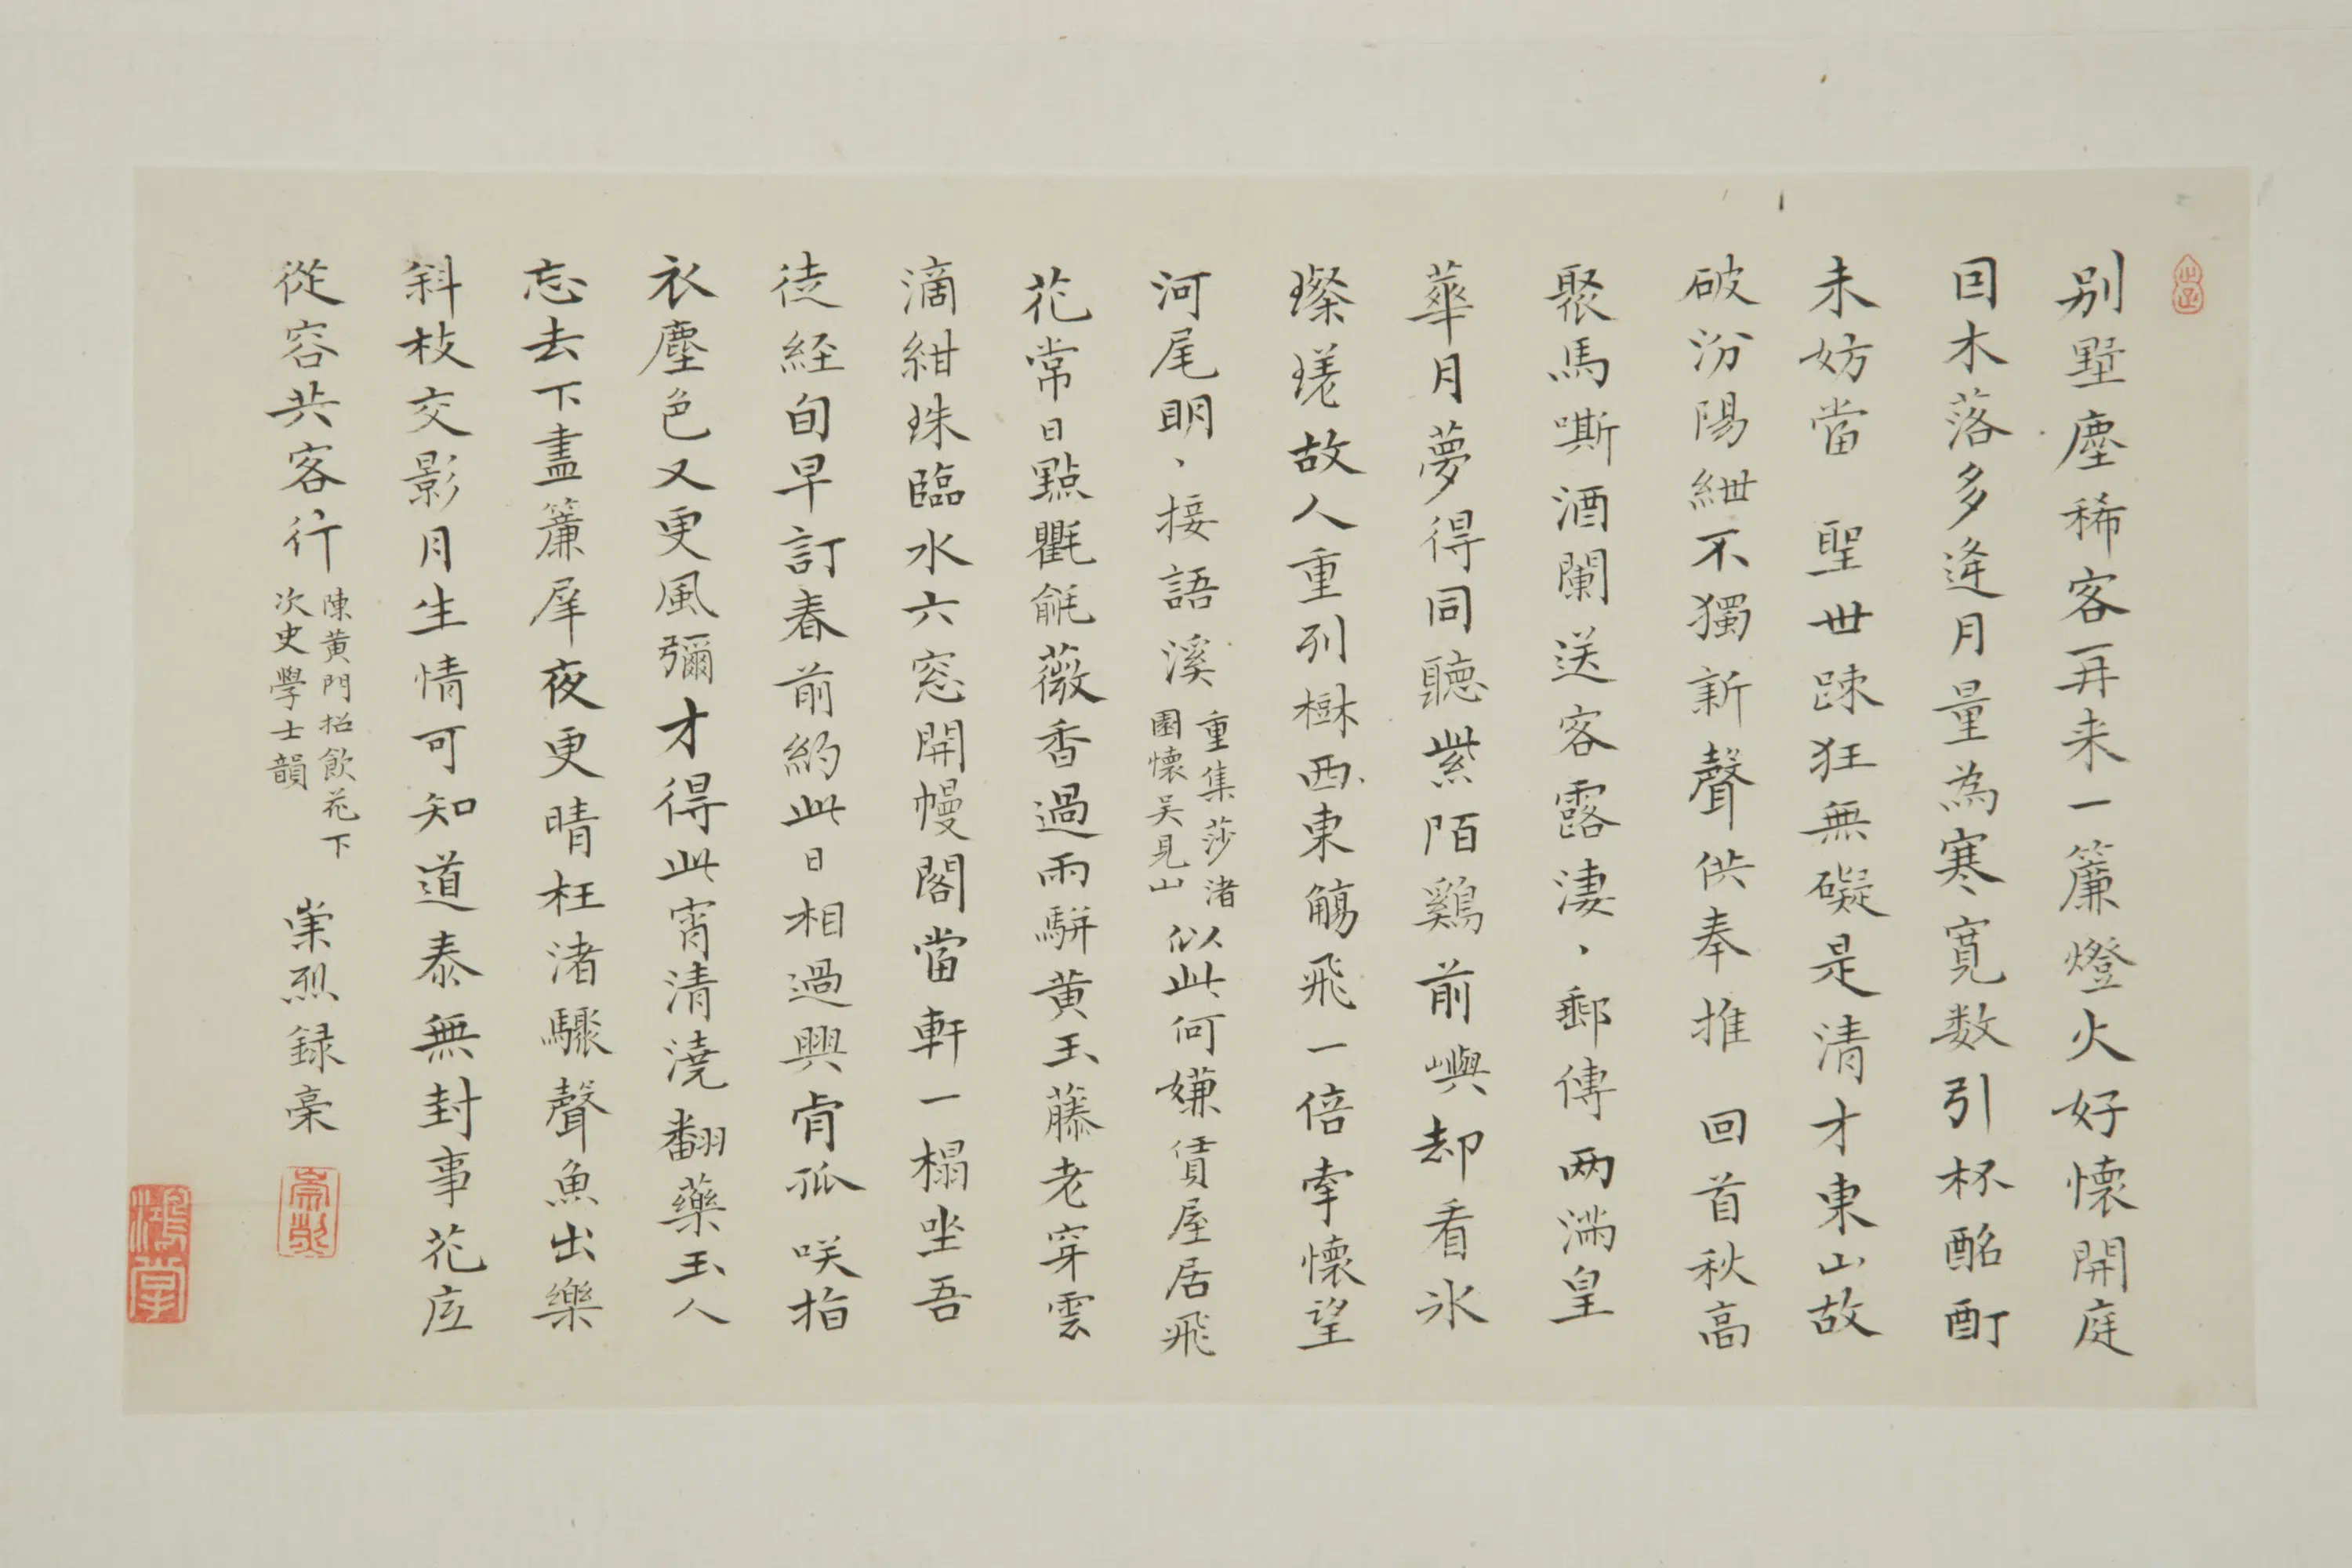 別墅塵稀客再来一簾燈火好懷開庭
因木落多逢月量為寒寬数引杯酩酊
未妨當 聖世踈狂無礙是清才東山故
破汾陽紲不獨新聲供奉推 回首秋高
聚馬嘶酒闌送客露淒、郵傳两滿皇
華月夢得同聽紫陌鷄前嶼却看氷
璨瑳故人重列樹西東觴飛一倍牽懷望
河尾明、接語溪
重集莎渚
園懷吴見山
似此何嫌賃屋居飛
花常日點氍毹薇香過雨駢黄玉藤老穿雲
滴紺珠臨水六窓開幔閣當軒一榻坐吾
徒経旬早訂春前約此日相過興肯孤 咲指
衣塵色又更風彌才得此宵清澆翻藥玉人
忘去下盡簾犀夜更晴枉渚驟聲魚出樂
斜枝交影月生情可知道泰無封事花底
從容共客行
陳黄門招飲花下
次史學士韻
崇烈録稾